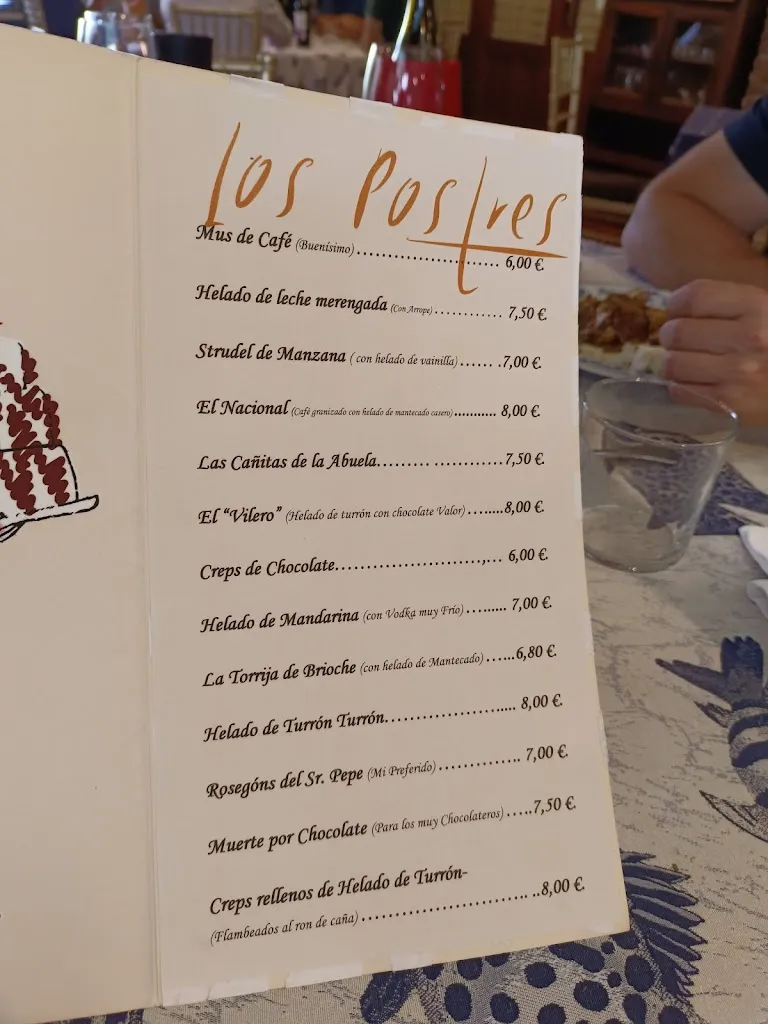 Los Postres
Mus de Café (Buenísimo)........................ 6,00 €.
Helado de leche merengada (Con Arrope)............ 7,50 €.
Strudel de Manzana ( con helado de vainilla)...... .7,00 €.
El Nacional (Café granizado con helado de mantecado casero)........... 8,00 €.
Las Cañitas de la Abuela......... .............7,50 €.
El "Vilero" (Helado de turrón con chocolate Valor) ........8,00 €.
Creps de Chocolate......................,... 6,00 €.
Helado de Mandarina (con Vodka muy Frío)......... 7,00 €.
La Torrija de Brioche (con helado de Mantecado)......6,80 €.
Helado de Turrón Turrón....................... 8,00 €.
Rosegóns del Sr. Pepe (Mi Preferido).............. 7,00 €.
Muerte por Chocolate (Para los muy Chocolateros).....7,50 €.
Creps rellenos de Helado de Turrón-
(Flambeados al ron de caña)............................ ..8,00 €.